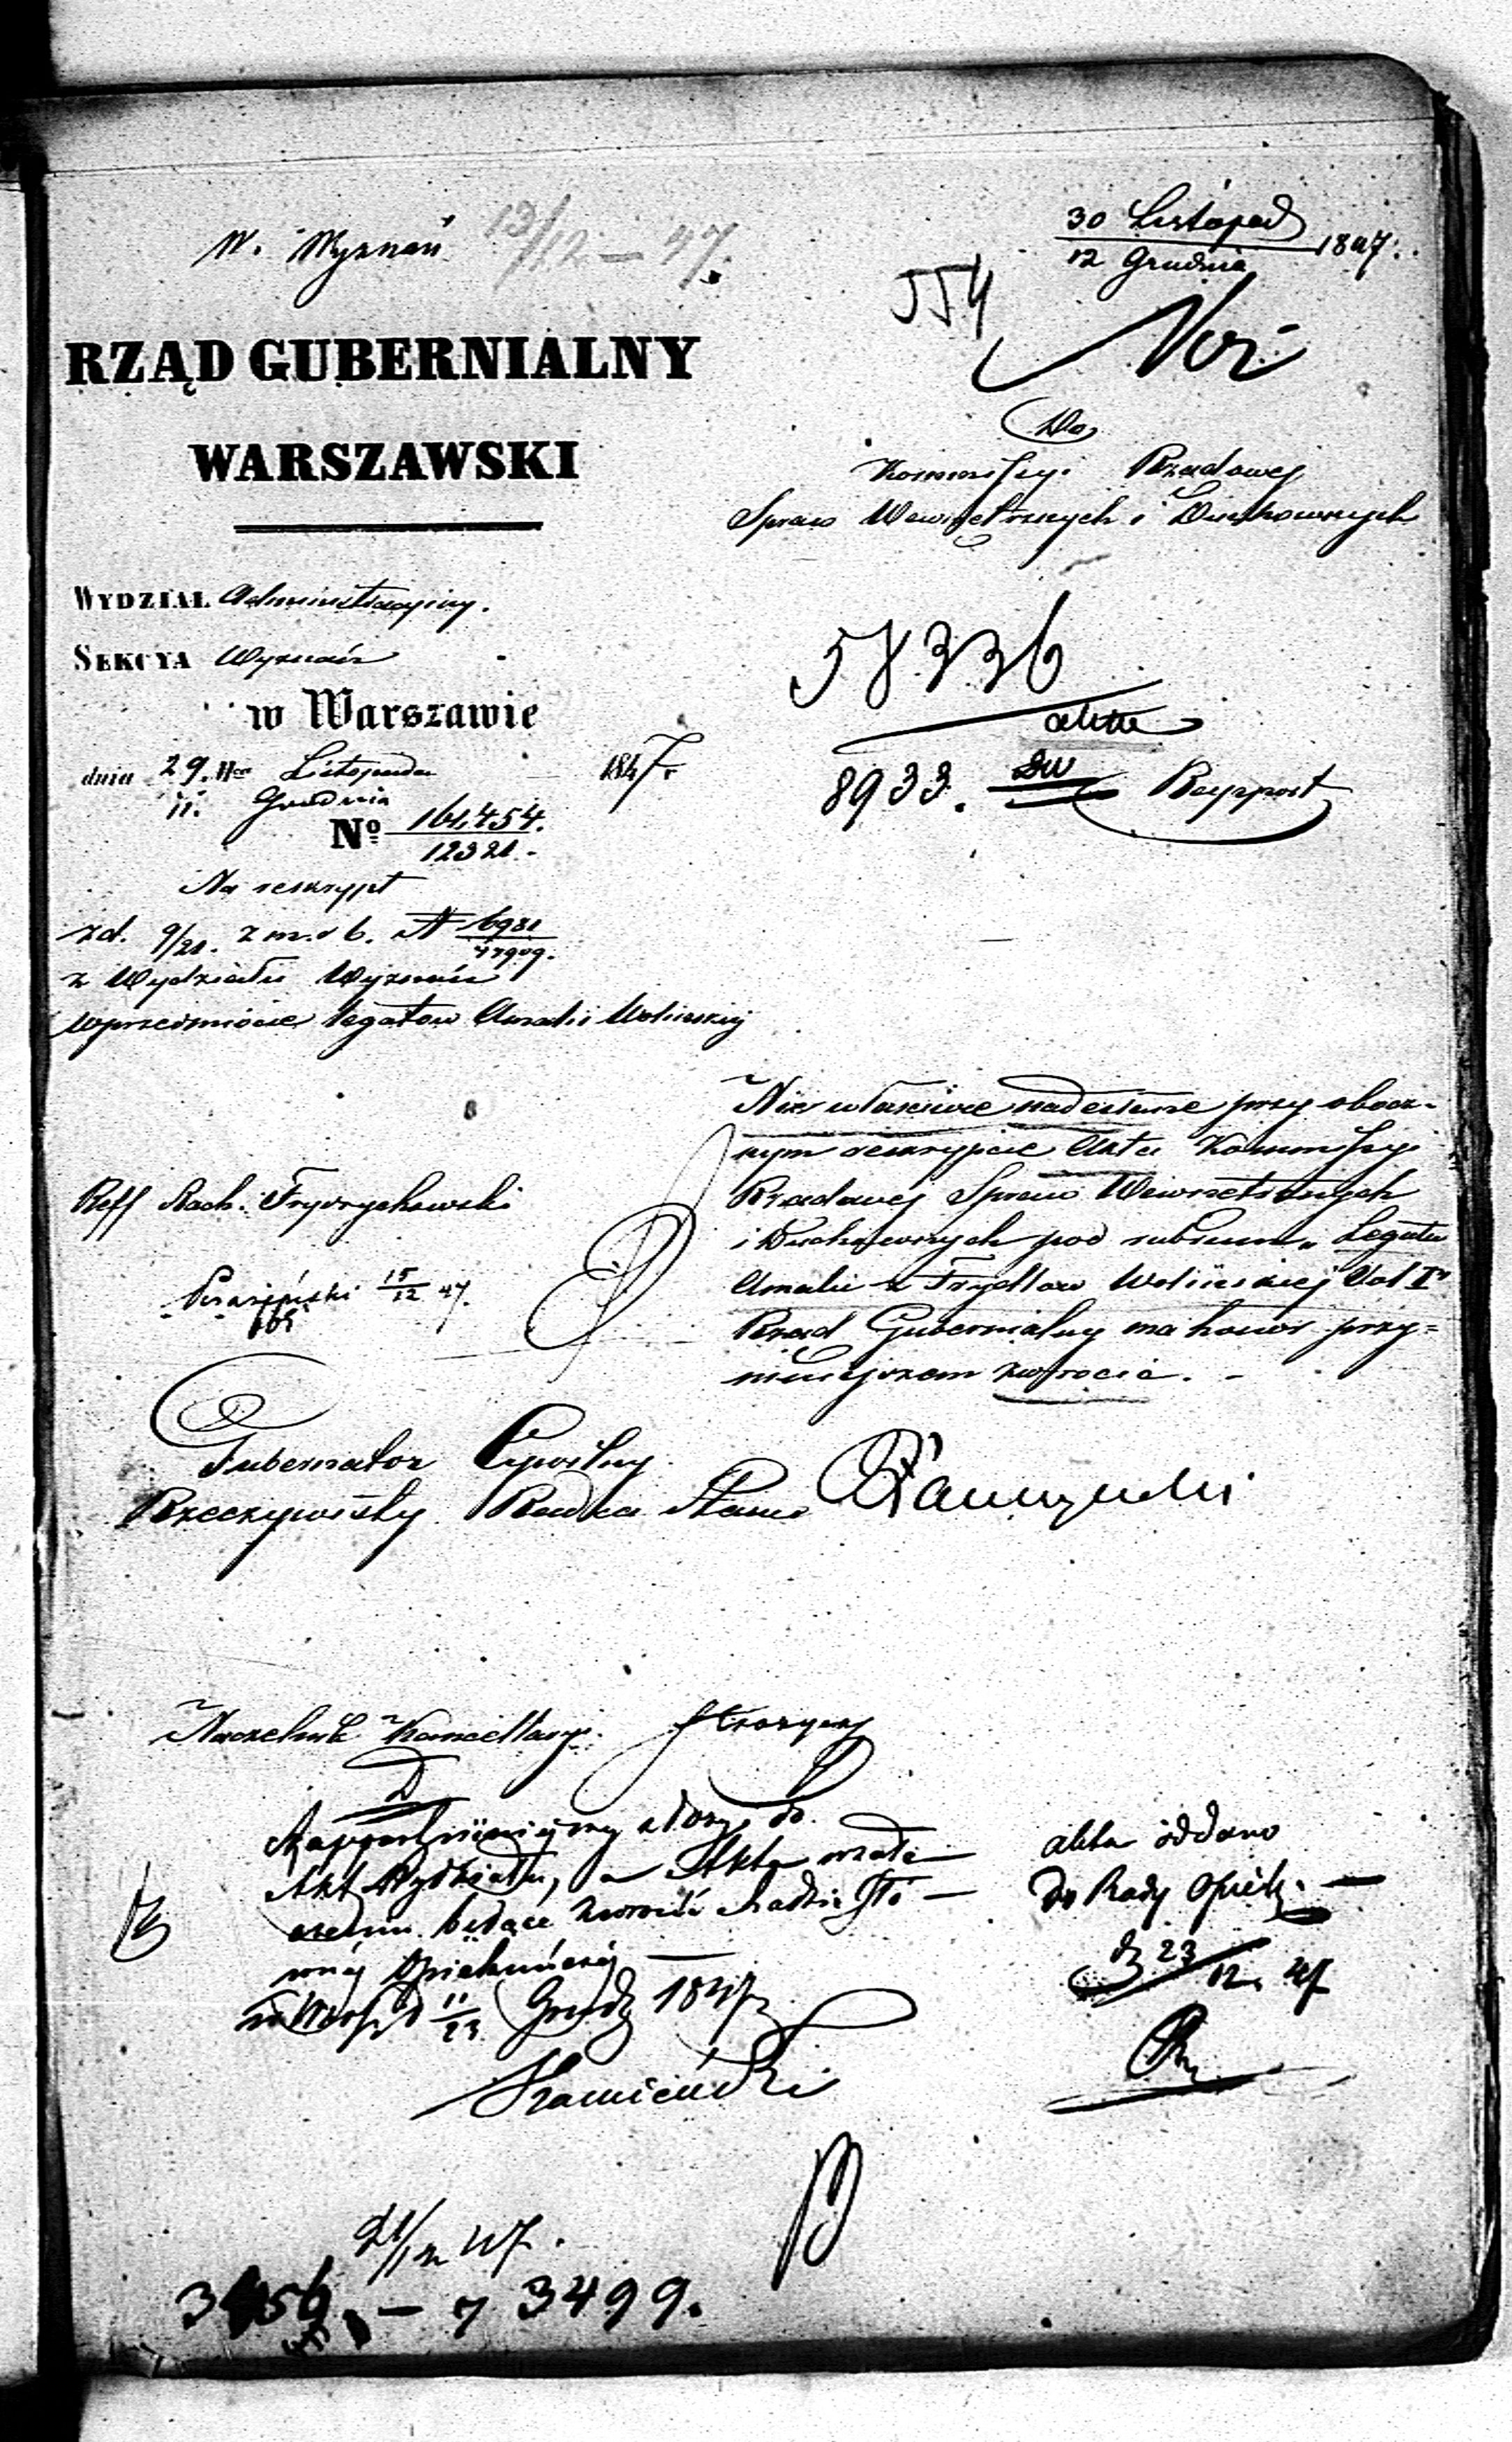 W. Wyznań 13/12 – 47.
30 Listopad
12 Grudnia 1847.
554
RZĄD GUBERNIALNY
WARSZAWSKI
Do
Kommissyi Rządowej
Spraw Wewnętrznych i Duchownych
WYDZIAŁ Administracyjny.
SEKCYA Wyznań
w Warszawie
dnia 29. Listopada 1847.
11. Grudnia
Nº 161,454.
12321.
58336
akta
8933. Rapport
Na reskrypt
z d. 9/21. z m. i b. N 6981
47909.
z Wydziału Wyznań
w przedmiocie legatów Amalii Wolińskiej
Niewłaściwie nadesłane przy obocz-
nym reskrypcie Akta Kommissyi
Rządowej Spraw Wewnętrznych
i Duchownych pod rubrum „Legata
Amalii z Frydlów Wolińskiej Vol I"
Rząd Gubernialny ma honor przy
niniejszem zwrócić.
Reff Rach. Frydrychowski
15/12 47.
Gubernator Cywilny
Rzeczywisty Radca Stanu
Naczelnik Kancellaryi
Rapport niniejszy złożyć do
Akt Wydziału, a Akta w zała-
czeniu będące zwrócić Radzie Głó-
wnej Opiekuńczej
w Warsz d 11/23 Grudz 1847
Kamieński
akta oddano
do Rady Opiek.
d 23/12 47
21/12 47.
73499.